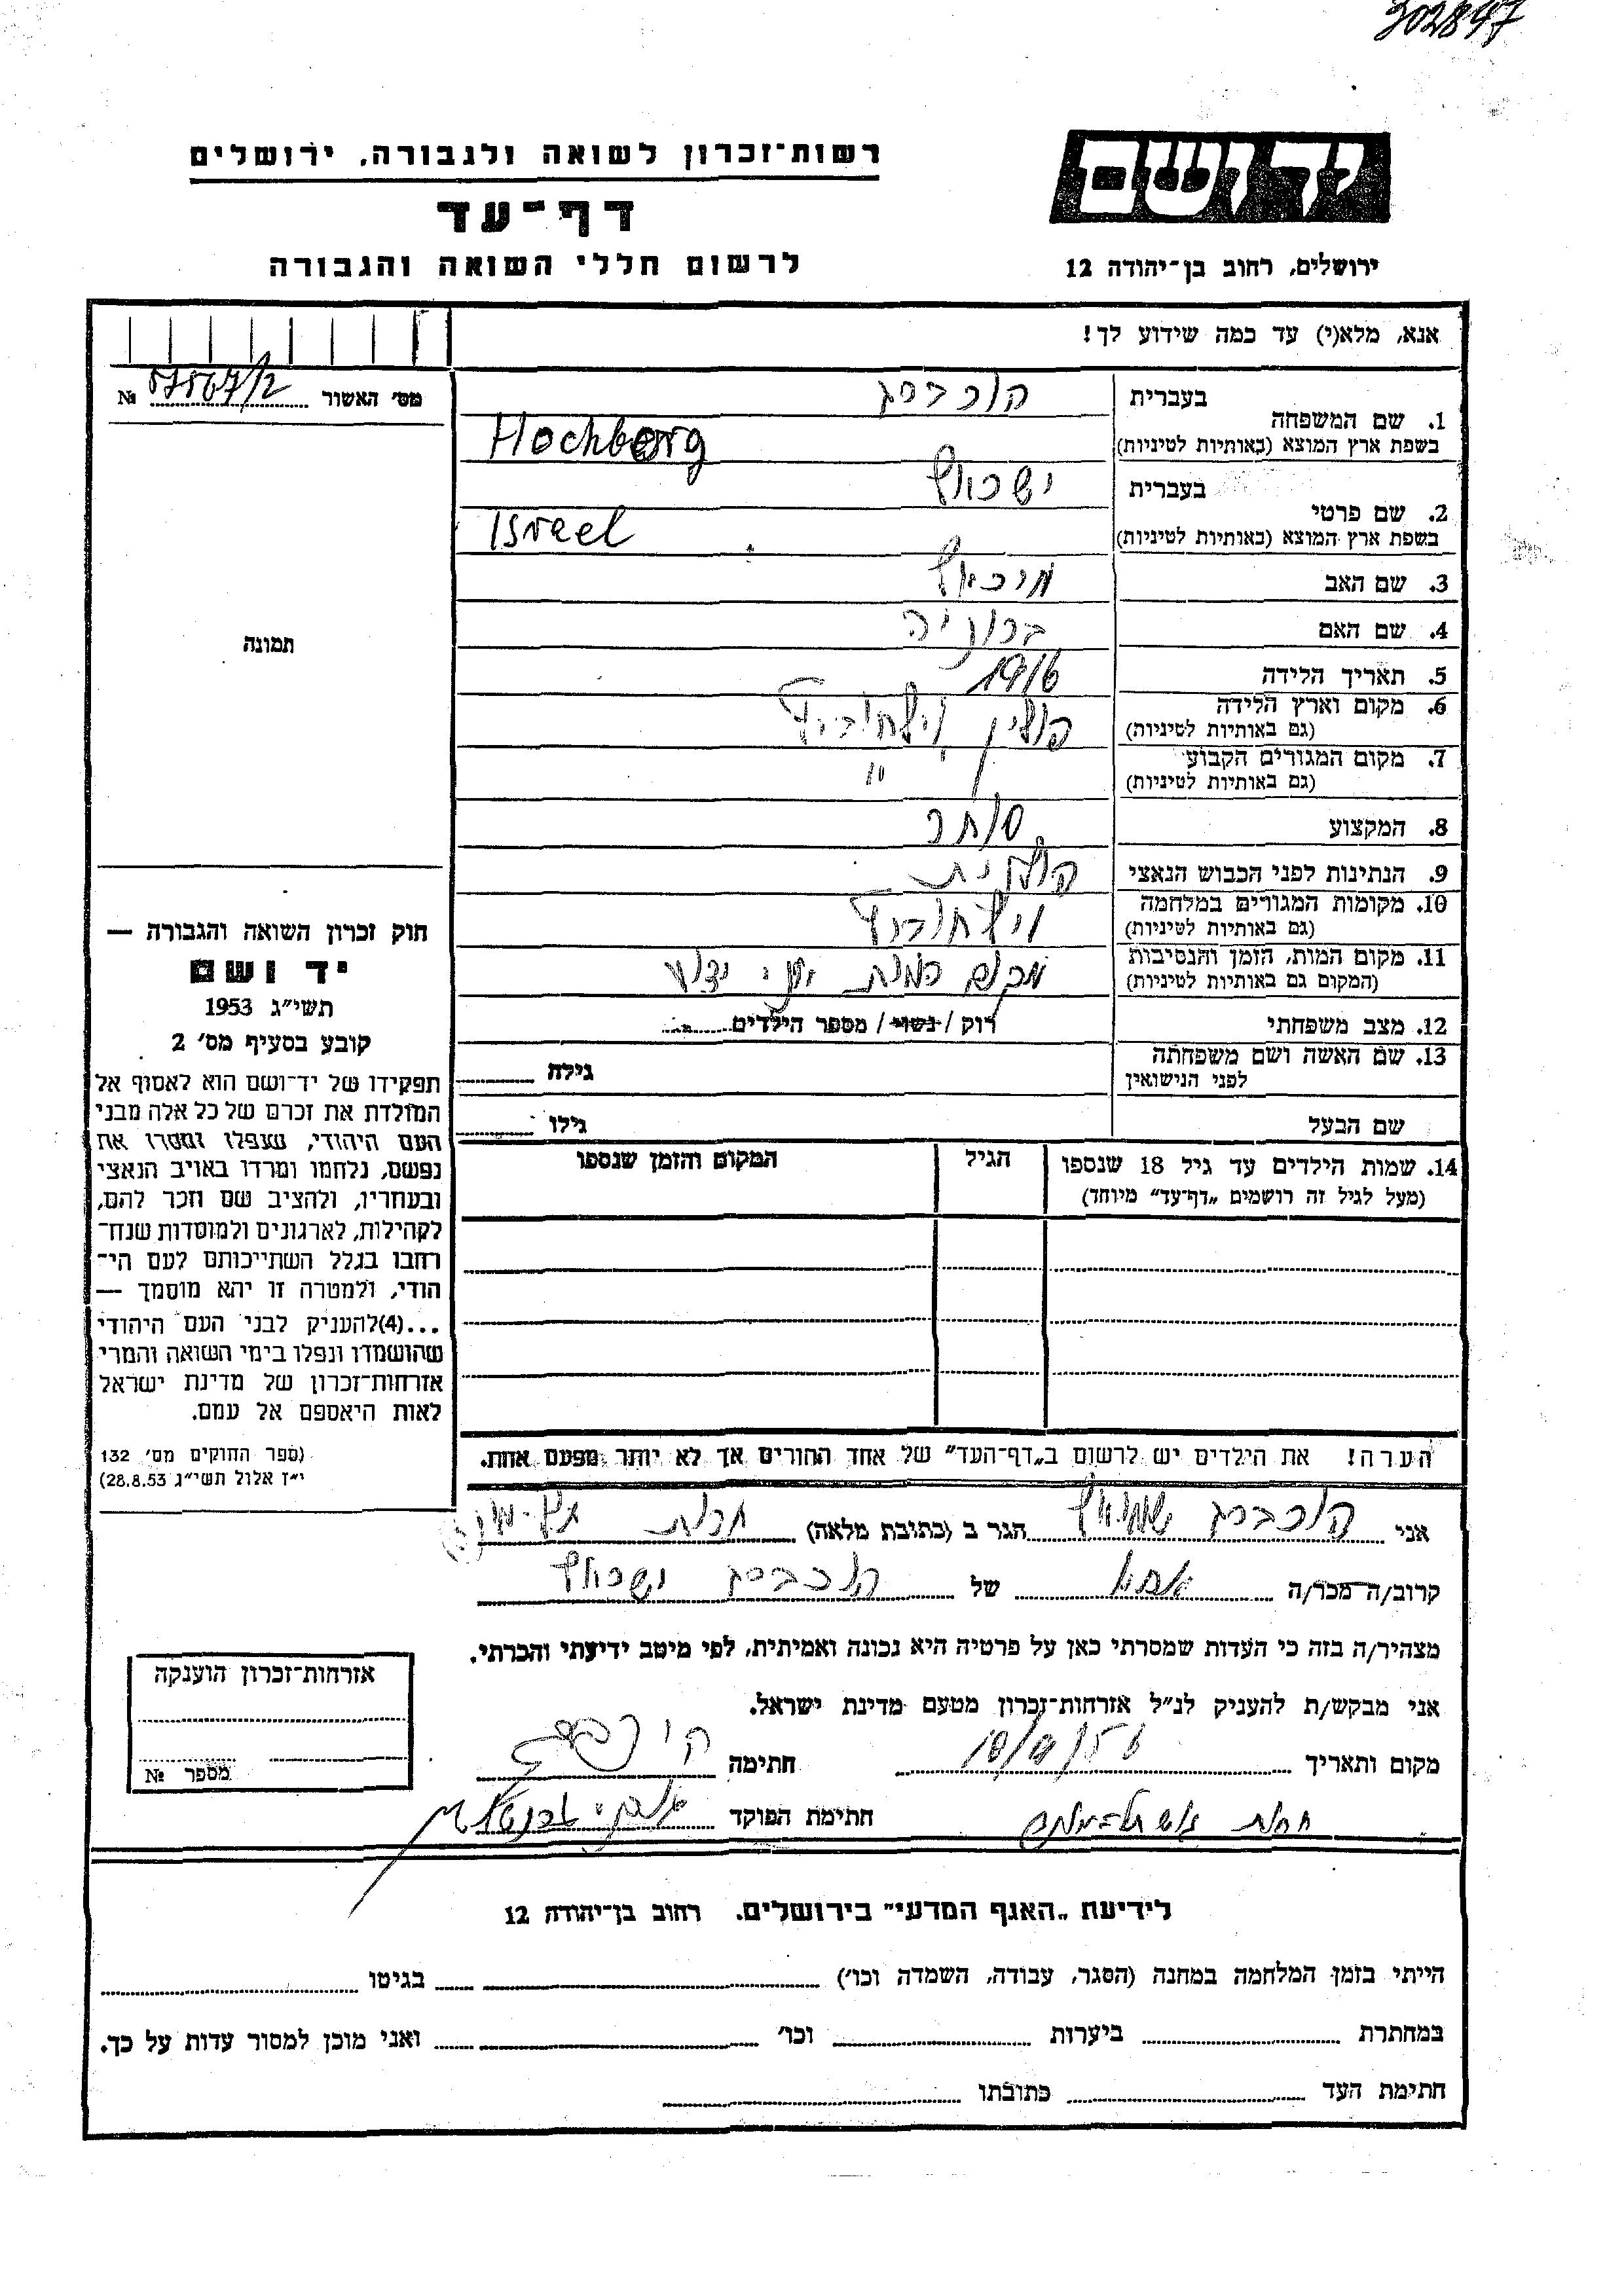 302847
רשות־זכרון לשואה ולגבורה, ירושלים
יד ושם
דף־עד
לרשום חללי השואה והגבורה
ירושלים, רחוב בן־יהודה 12
אנא, מלא(י) עד כמה שידוע לך!
מס׳ האשור № 57567/2
1. שם המשפחה בעברית הוכברג
בשפת ארץ המוצא (באותיות לטיניות) Hochberg
2. שם פרטי בעברית ישראל
בשפת ארץ המוצא (באותיות לטיניות) Isreel
3. שם האב מיכאל
4. שם האם
5. תאריך הלידה 1916
6. מקום וארץ הלידה פולין
(גם באותיות לטיניות)
7. מקום המגורים הקבוע "
(גם באותיות לטיניות)
8. המקצוע סוחר
9. הנתינות לפני הכבוש הנאצי פולנית
10. מקומות המגורים במלחמה
(גם באותיות לטיניות)
11. מקום המות, הזמן והנסיבות מקום המות אי ידוע
(המקום גם באותיות לטיניות)
12. מצב משפחתי רוק / נשוי / מספר הילדים
13. שם האשה ושם משפחתה לפני הנישואין גילה
שם הבעל גילו
14. שמות הילדים עד גיל 18 שנספו הגיל המקום והזמן שנספו
(מעל לגיל זה רושמים „דף־עד” מיוחד)
הערה! את הילדים יש לרשום ב„דף־העד” של אחד ההורים אך לא יותר מפעם אחת.
תמונה
חוק זכרון השואה והגבורה —
יד ושם
תשי״ג 1953
קובע בסעיף מס׳ 2
תפקידו של יד־ושם הוא לאסוף אל
המולדת את זכרם של כל אלה מבני
העם היהודי, שנפלו ומסרו את
נפשם, נלחמו ומרדו באויב הנאצי
ובעוזריו, ולהציב שם וזכר להם,
לקהילות, לארגונים ולמוסדות שנח־
רבו בגלל השתייכותם לעם הי־
הודי, ולמטרה זו יהא מוסמך —
...(4)להעניק לבני העם היהודי
שהושמדו ונפלו בימי השואה והמרי
אזרחות־זכרון של מדינת ישראל
לאות היאספם אל עמם.
(ספר החוקים מס׳ 132
י״ז אלול תשי״ג 28.8.53)
אני הוכברג שמואל הגר ב (כתובת מלאה)
קרוב/ה מכר/ה של הוכברג ישראל
מצהיר/ה בזה כי העדות שמסרתי כאן על פרטיה היא נכונה ואמיתית, לפי מיטב ידיעתי והכרתי.
אני מבקש/ת להעניק לנ״ל אזרחות־זכרון מטעם מדינת ישראל.
מקום ותאריך חתימה
חתימת הפוקד
אזרחות־זכרון הוענקה
מספר №
לידיעת „האגף המדעי” בירושלים. רחוב בן־יהודה 12
הייתי בזמן המלחמה במחנה (הסגר, עבודה, השמדה וכו׳) בגיטו
במחתרת ביערות וכו׳ ואני מוכן למסור עדות על כך.
חתימת העד כתובתו